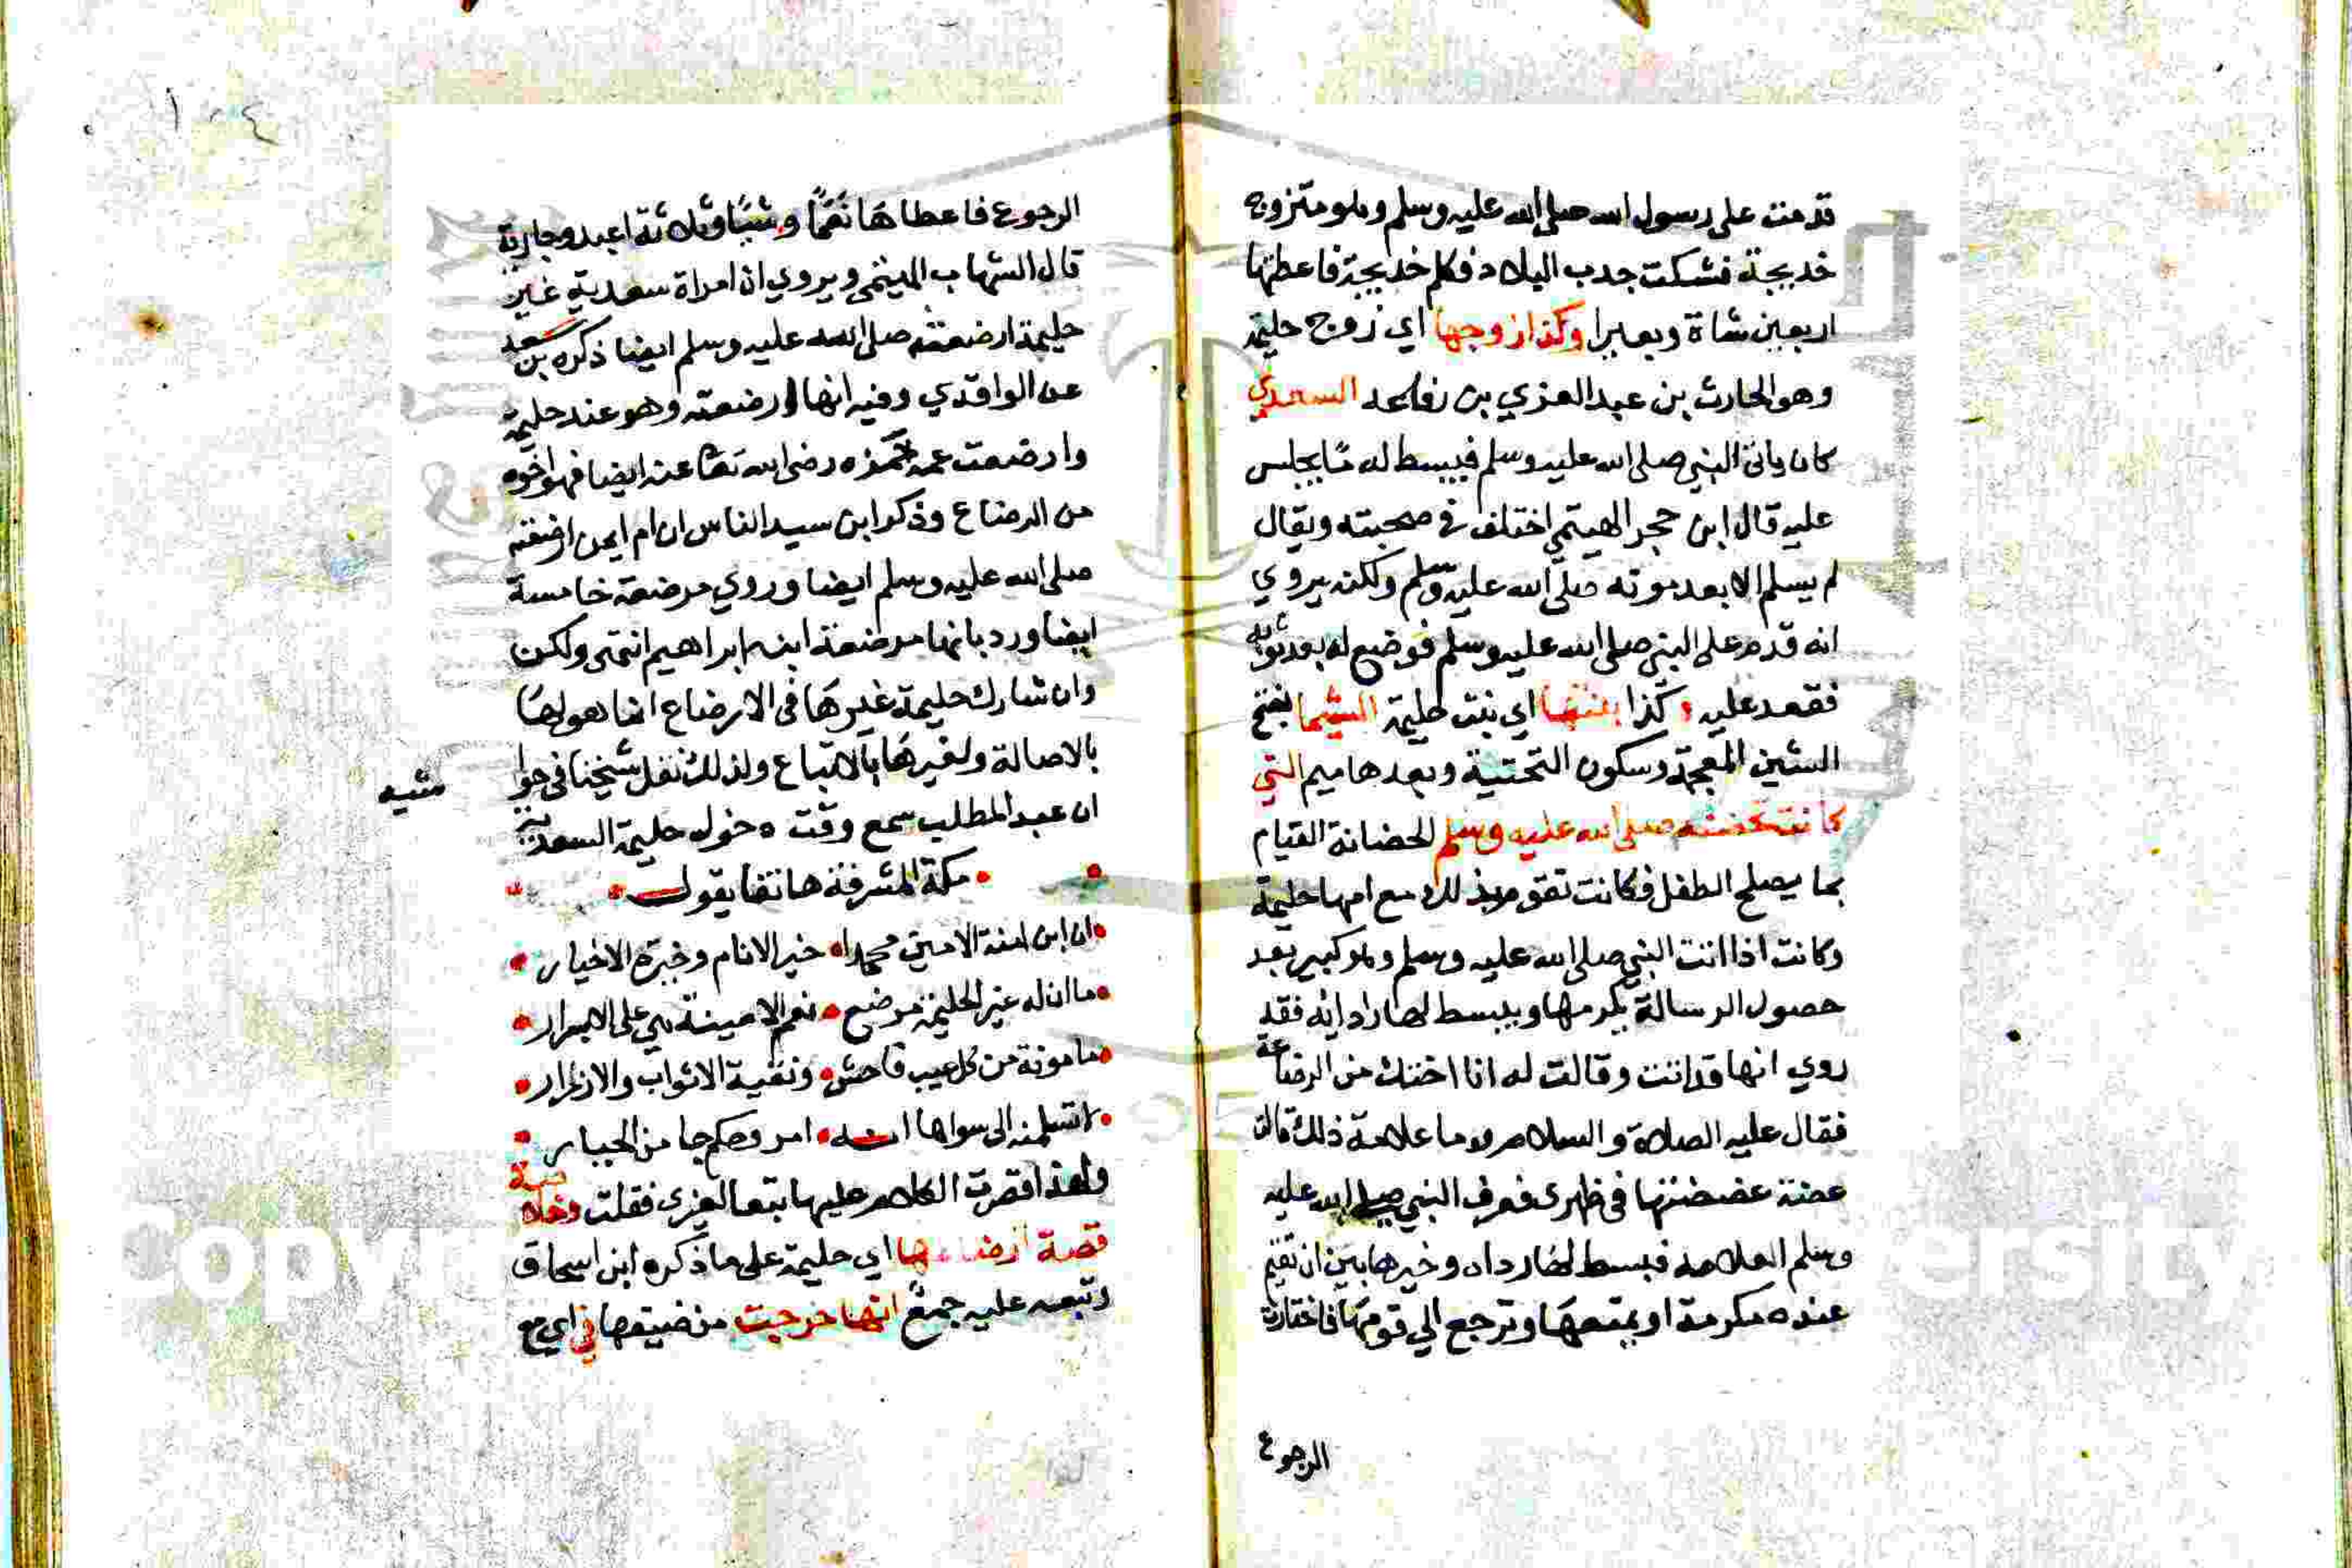 قدمت على رسول الله صلى الله عليه وسلم وهو متزوج
خديجة فشكت جدب البلاد فكلم خديجة فاعطتها
اربعين شاة وبعيرا وكذا زوجها اي زوج حليمة
وهو الحارث بن عبد العزي بن رفاعه السعدي
كان ياتي النبي صلى الله عليه وسلم فيبسط له ما يجلس
عليه قال ابن حجر الهيتمي اختلف في صحبته ويقال
لم يسلم الا بعد موته صلى الله عليه وسلم ولكنه يروي
انه قدم على النبي صلى الله عليه وسلم فوضع له بعد ثوبه
فقعد عليه وكذا بنتها اي بنت حليمة الشيما بفتح
الشين المعجمة وسكون التحتية وبعدها ميم التي
كانت تحضنه صلى الله عليه وسلم الحضانة القيام
بما يصلح الطفل فكانت تقوم بذلك مع امها حليمة
وكانت اذا اتت النبي صلى الله عليه وسلم وهو كبير بعد
حصول الرسالة يكرمها ويبسط لها ردائه فقد
روي انها قد اتت وقالت له انا اختك من الرضاعة
فقال عليه الصلاة والسلام وما علامة ذلك قالت
عضة عضضتنها في ظهري فعرف النبي صلى الله عليه
وسلم العلامه فبسط لها رداه وخيرها بين ان تقيم
عنده مكرمة او يمتعها وترجع الي قومها فاختارت
الرجوع
١٠٤
الرجوع فاعطاها نعما وشبا وثلاثة اعبد وجارية
قال الشهاب الهيتمي ويروي ان امراة سعدية غير
حليمة ارضعته صلى الله عليه وسلم ايضا ذكره بن سعد
عن الواقدي وفيه انها ارضعته وهو عند حليمة
وارضعت عمه حمزه رضي الله تعا عنه ايضا فهو اخوه
من الرضاع وذكر ابن سيد الناس ان ام ايمن ارضعته
صلى الله عليه وسلم ايضا وروي مرضعة خامسة
ايضا ورد بانها مرضعة ابنه ابراهيم انتهى ولكن
وان شارك حليمة غيرها في الارضاع انما هو لها
بالاصالة ولغيرها بالاتباع ولذلك نقل شيخنا في حوا
شيه
ان عبد المطلب سمع وقت دخول حليمة السعدية
مكة المشرفة هاتفا يقول
ان ابن امنة الامين محمدا • خير الانام وخيرة الاخيار
ما ان له غير الحليمة مرضع • نعم الامينة هي على الابرار
مامونة من كل عيب فاحش • ونقية الاثواب والازرار
لا تسلمنه الى سواها انه • امر وحكم جا من الجبار
ولهذا قصرت الكلام عليها تبعا لغيري فقلت
قصة ارضاعها اي حليمة على ما ذكره ابن اسحاق
وتبعه عليه جمع انها خرجت من ضيعها في اي مع